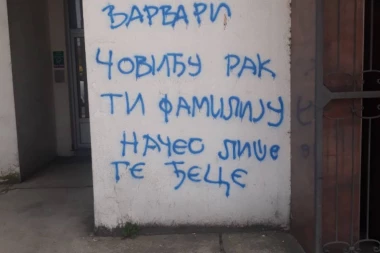 ВАРВАРИ
ЧОВИЂУ РАК
ТИ ФАМИЛИЈУ
НАЧЕО ЛИШЕ
ТЕ ЂЕЦЕ